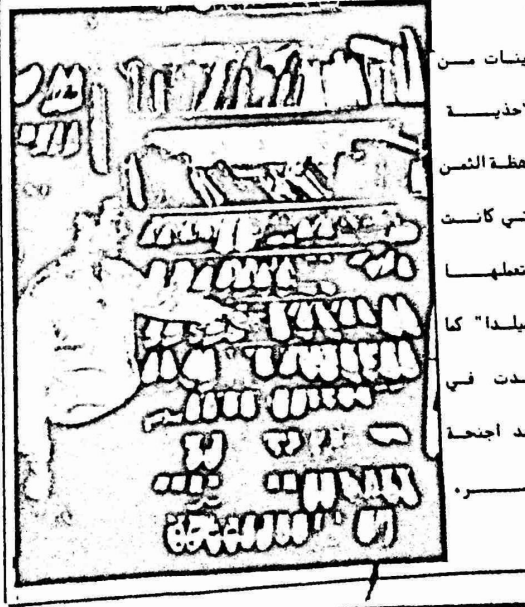 ينات مــن
حذيــــة
هظة الثمن
تي كانت
تعلهـــا
يلدا" كما
دت في
د اجنحة
ـــــر.